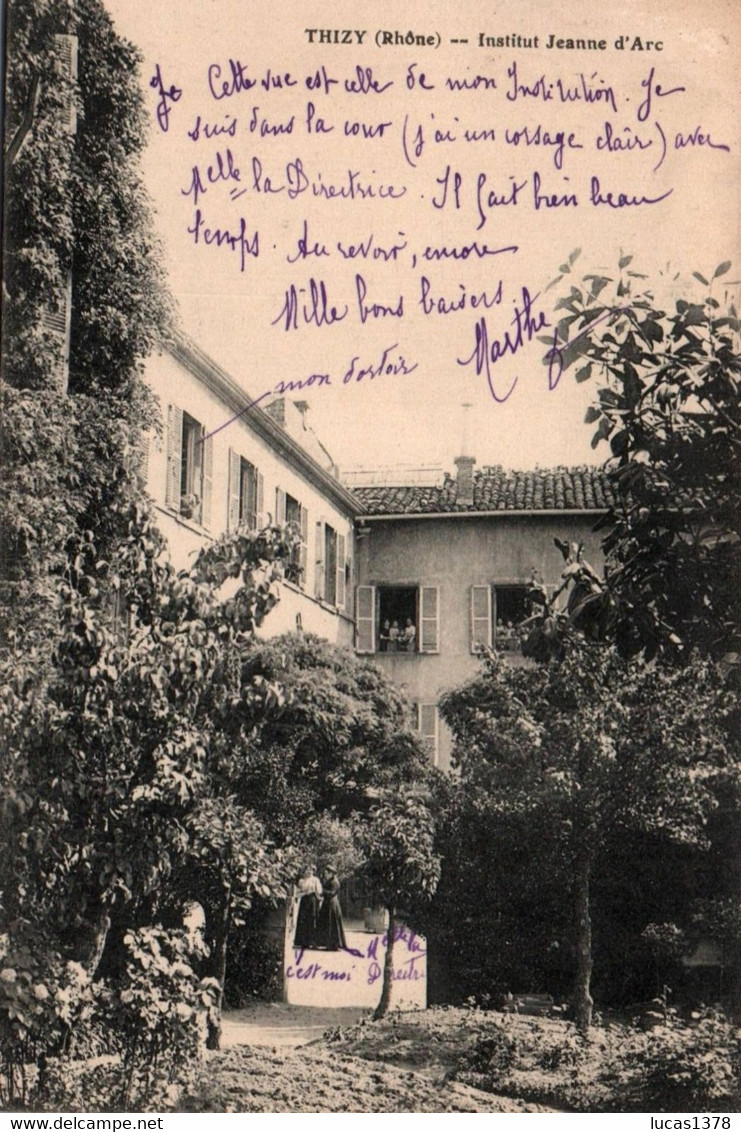 THIZY (Rhône) -- Institut Jeanne d'Arc
Je Cette vue est celle de mon Institution. Je
suis dans la cour (j'ai un corsage clair) avec
Melle la Directrice. Il fait bien beau
temps. Au revoir, encore
Mille bons baisers.
Marthe
mon dortoir
c'est moi
lucas1378